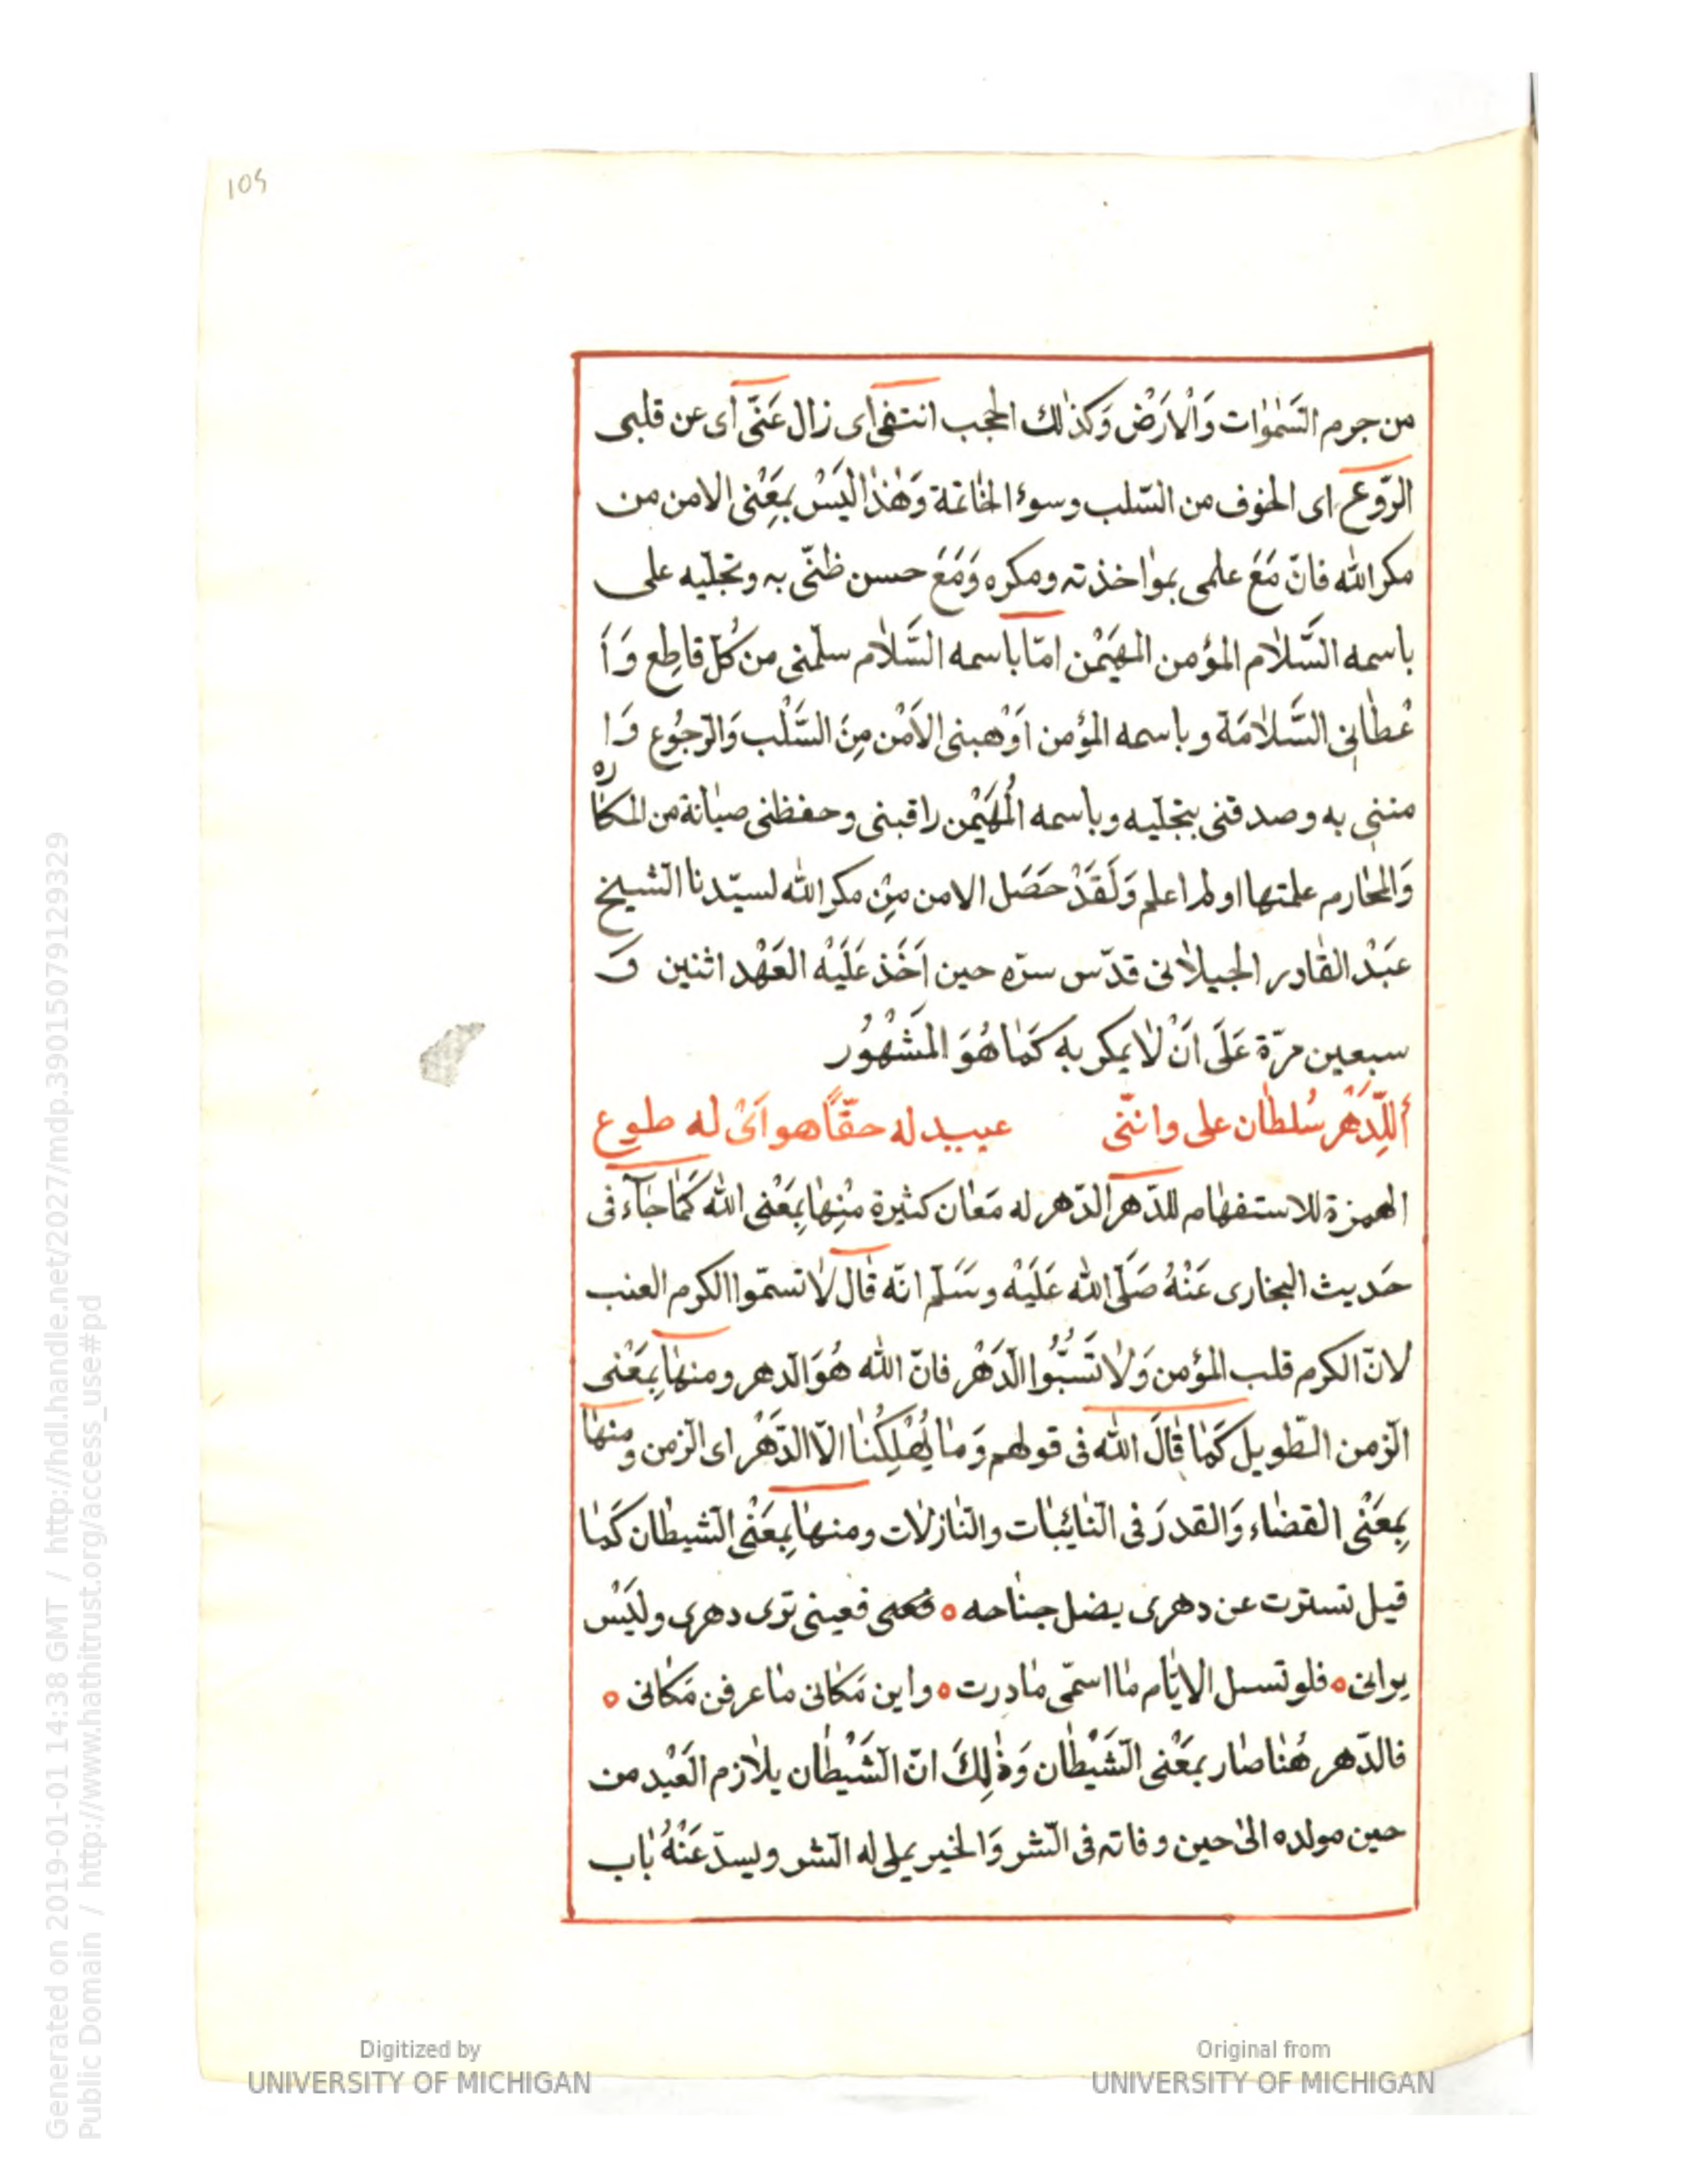 105
من جرم السَّمٰوٰات وَالْاَرَضْ وَكذٰلك الحجب انتفى اى زال عَنّى اى عن قلبى
الرَّوع اى الخوف من السّلب وسوء الخاتمة وَهٰذٰا لَيْسْ بمَعْنى الامن من
مكر الله فانّ مَعَ علمى بموٰاخذته ومكره وَمَعَ حسن ظنّى به وتجلّيه على
باسمه السَّلاٰم المؤمن المهَيْمن امّا باسمه السَّلاٰم سلّمنى من كُلّ قاطِع وَ اَ
عْطانى السَّلاٰمَة وباسمه المؤمن اَوْهبنى الاَمْن مِنَ السَّلْب وَالرّجُوع وَ ا
مننى به وصدقنى بتجلّيه وباسمه الْمُهَيْمن راقبنى وحفظنى صيانة من المكاره
وَالمحٰارم علمتها او لم اعلم وَلَقَدْ حَصَل الامن مِنْ مكر الله لسيّدنا الشيخ
عَبْدْ القٰادر الجيلاٰنى قدّس سرّه حين اَخَذ عَلَيْه العَهْد اثنين وَ
سبعين مرّة عَلَى اَنْ لاٰ يمكر به كَمٰا هُوَ المَشْهُوُر
أللِّدَهْر سُلطٰان على واننّى عبيد له حقّاً هو اَىْ له طوع
الهمزة للاستفهٰام للدّهر الدّهر له مَعٰان كثيرة مِنْهٰا بِمَعْنى الله كَمٰا جٰآء فى
حَديث البخارى عَنْهُ صَلَّى الله عَلَيْه وسَلّم انّه قٰال لاٰ تسمّوا الكرم العنب
لانّ الكرم قلب المؤمن وَلاٰ تَسُبُّوا الدَّهْر فانّ الله هُوَ الدّهر ومنهٰا بِمَعْنى
الزّمن الطّويل كَمٰا قٰالَ الله فى قولهم وَمٰا يُهْلِكُنٰا الاّ الدَّهْر اى الزّمن ومنهٰا
بِمَعْنى القضٰاء وَالقدرَ فى النّائبٰات والنّازلاٰت ومنهٰا بِمَعْنى الشيطٰان كَمٰا
قيل تسترت عن دهرى بضل جنٰاحه ه فعينى ترى دهرى وليَسْ
يرانى ه فلو تسل الايّام مٰا اسمّى مٰا درت ه واين مَكانى مٰا عرفن مَكانى ه
فالدّهر هُنٰا صٰار بمَعْنى الشَيْطٰان وَذٰلِكَ انّ الشَيْطٰان يلاٰزم العَبْد من
حين مولده الى حين وفاته فى الشر وَالخير يملى له الشر ويسدّ عَنْهُ بٰاب
Generated on 2019-01-01 14:38 GMT / http://hdl.handle.net/2027/mdp.39015079129329
Public Domain / http://www.hathitrust.org/access_use#pd
Digitized by
UNIVERSITY OF MICHIGAN
Original from
UNIVERSITY OF MICHIGAN